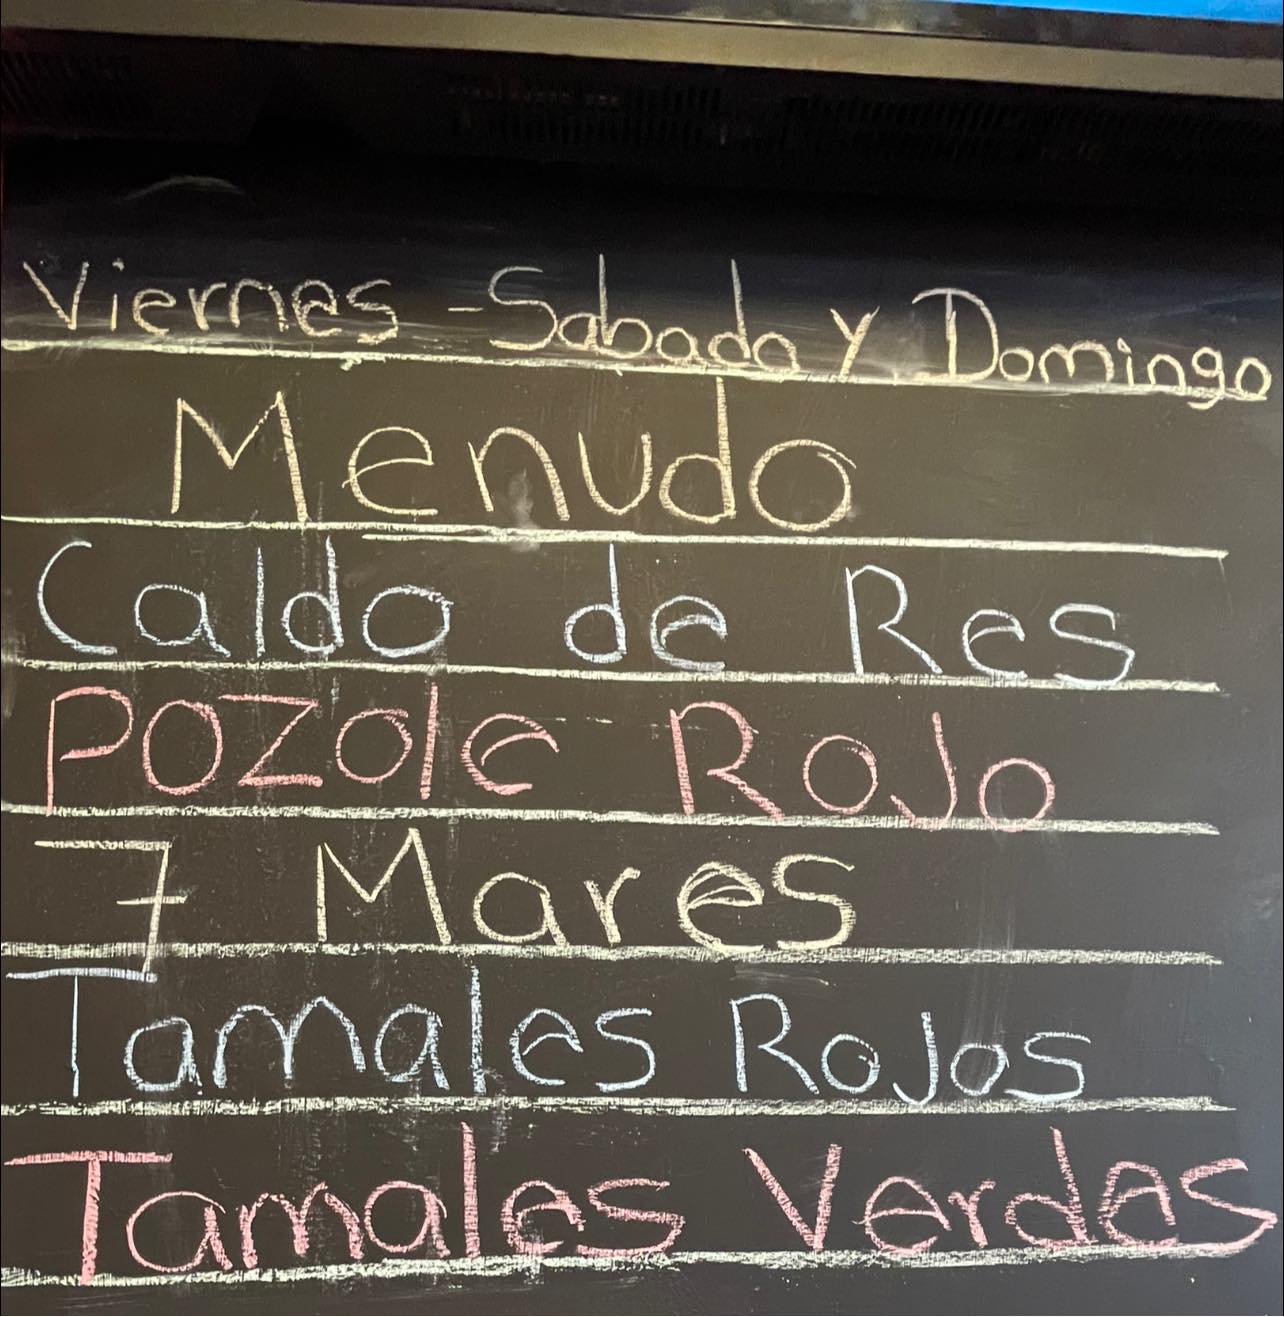 Viernes - Sabado y Domingo
Menudo
Caldo de Res
Pozole Rojo
7 Mares
Tamales Rojos
Tamales Verdes